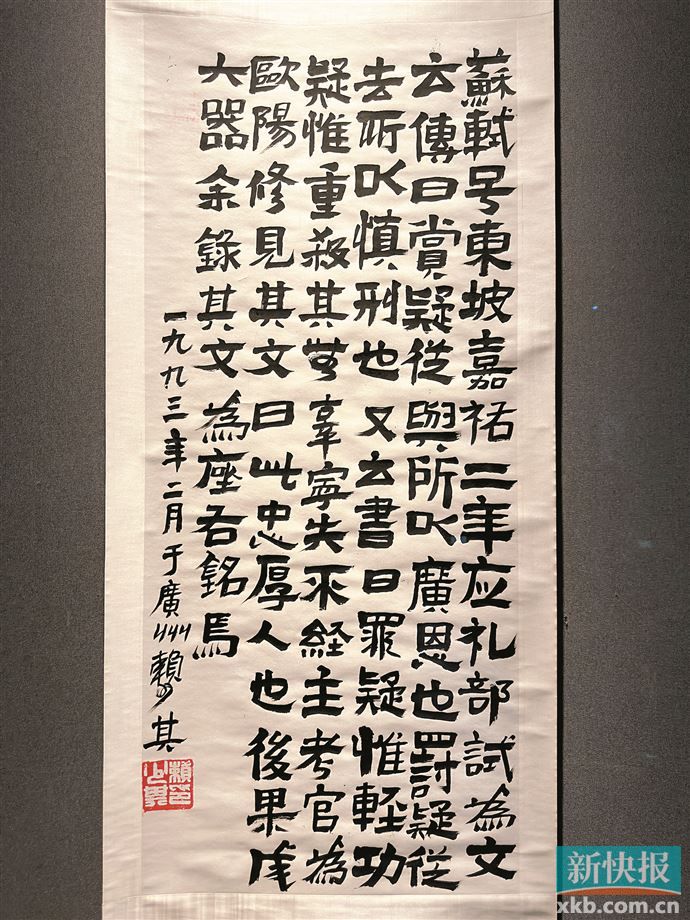 蘇軾号東坡嘉祐二年应礼部試為文
云傳曰賞疑從與所以廣恩也罰疑從
去所以慎刑也又云書曰罪疑惟輕功
疑惟重殺其無辜寧失不経主考官為
歐陽修見其文曰此忠厚人也後果成
大器余錄其文為座右銘焉
一九九三年二月于廣州賴少其
新快报
xkb.com.cn